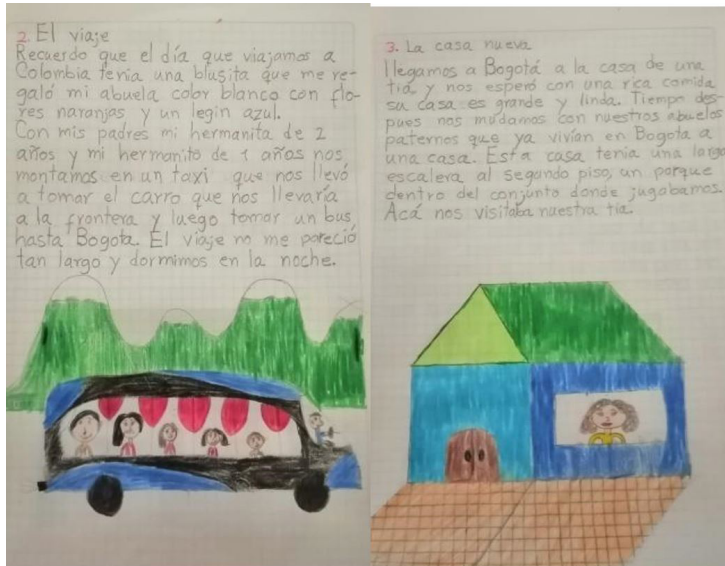 2. El viaje
Recuerdo que el día que viajamos a
Colombia tenia una blusita que me re-
galó mi abuela color blanco con flo-
res naranjas y un legin azul.
Con mis padres mi hermanita de 2
años y mi hermanito de 1 años nos
montamos en un taxi que nos llevó
a tomar el carro que nos llevaría
a la frontera y luego tomar un bus
hasta Bogota. El viaje no me pareció
tan largo y dormimos en la noche.
3. La casa nueva
llegamos a Bogotá a la casa de una
tia y nos esperó con una rica comida
su casa es grande y linda. Tiempo des-
pues nos mudamos con nuestros abuelos
paternos que ya vivían en Bogota a
una casa. Esta casa tenia una larga
escalera al segundo piso, un parque
dentro del conjunto donde jugabamos.
Acá nos visitaba nuestra tia.